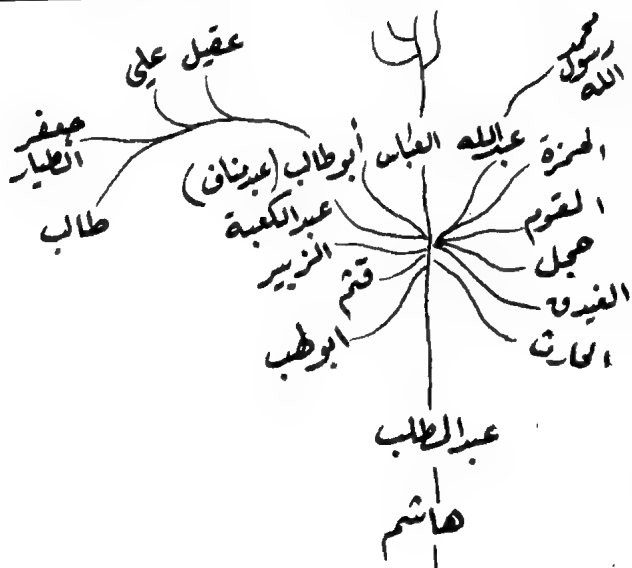 محمد
رسول
الله
عقيل
علي
جعفر
الطيار
طالب
أبو طالب (عبد مناف)
العباس
عبد الله
الحمزة
المقوم
حجل
الغيدق
الحارث
عبد الكعبة
الزبير
قثم
ابو لهب
عبد المطلب
هاشم